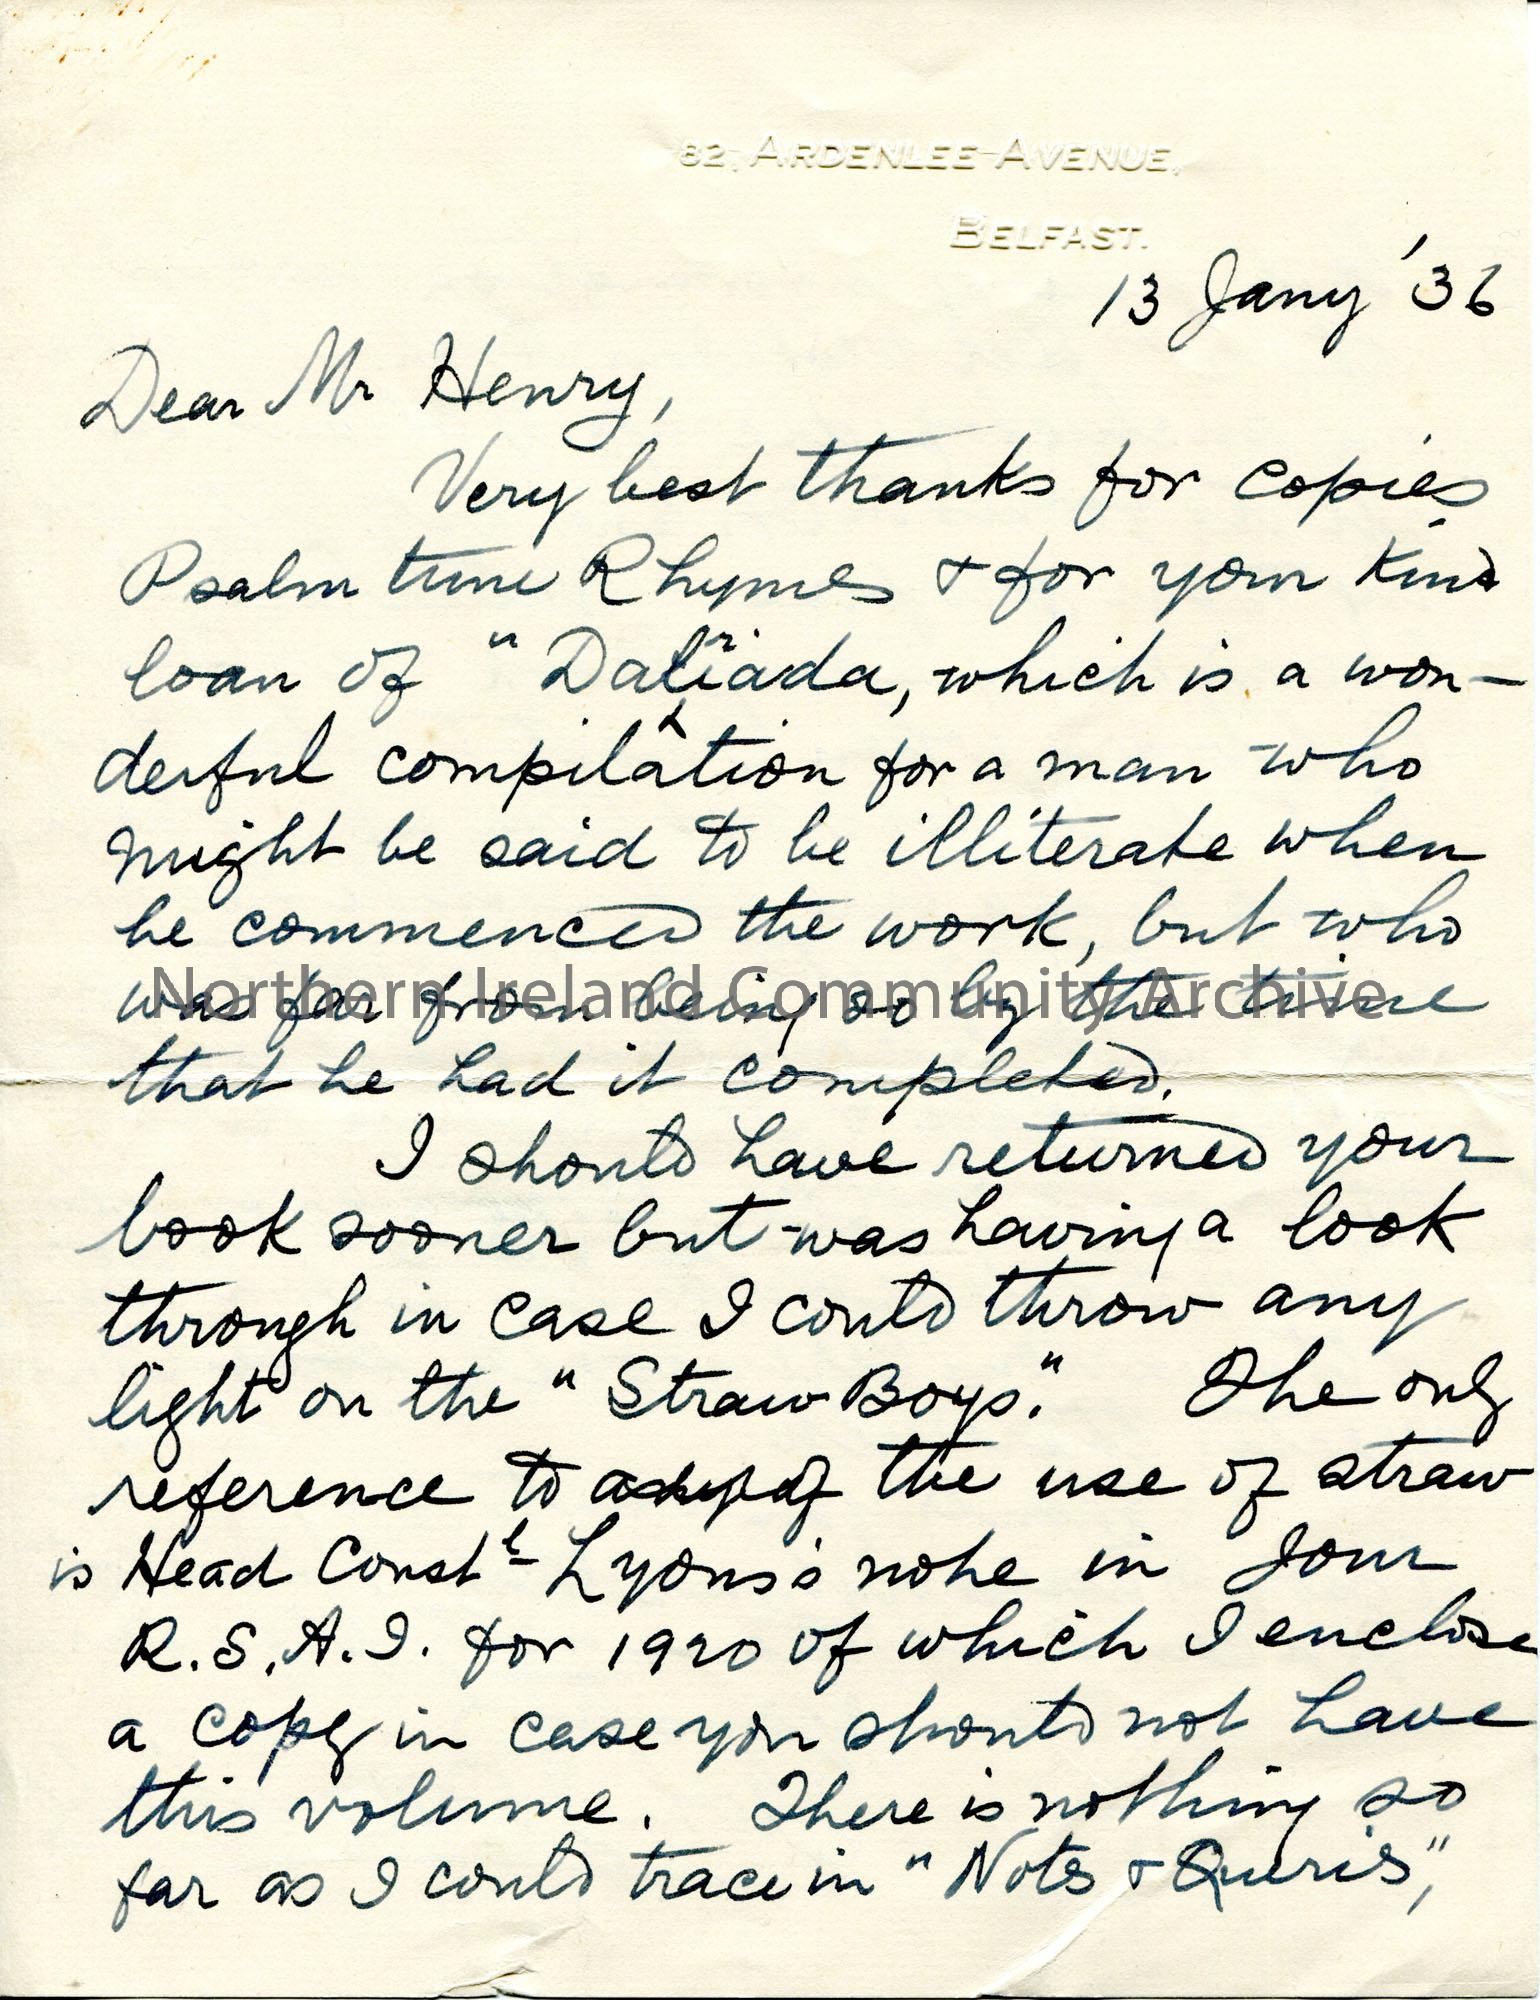 82, ARDENLEE AVENUE,
BELFAST.
13 Jany '36
Dear Mr Henry,
Very best thanks for copies
Psalm tune Rhymes & for your kind
loan of "Dalriada, which is a won-
derful compilation for a man who
might be said to be illiterate when
he commenced the work, but who
was far from being so by the time
that he had it completed.
I should have returned your
book sooner but was having a look
through in case I could throw any
light on the "Straw Boys." The only
reference to the use of straw
is Head Constl Lyons's note in Jour
R.S.A.I. for 1920 of which I enclose
a copy in case you should not have
this volume. There is nothing so
far as I could trace in "Notes & Queries",
Northern Ireland Community Archive